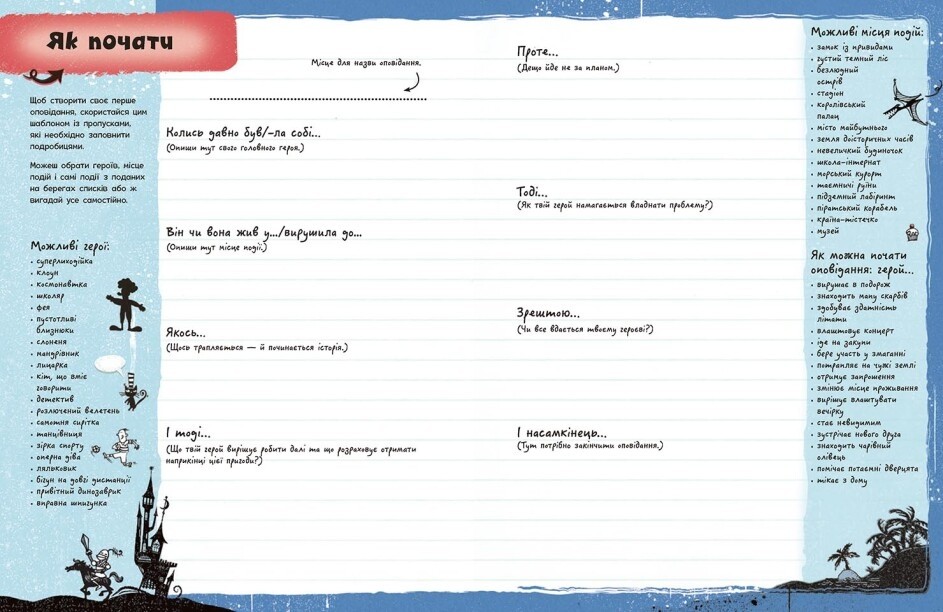 Як почати
Щоб створити своє перше
оповідання, скористайся цим
шаблоном із пропусками,
які необхідно заповнити
подробицями.
Можеш обрати героїв, місце
подій і самі події з поданих
на берегах списків або ж
вигадай усе самостійно.
Можливі герої:
• суперлиходійка
• клоун
• космонавтка
• школяр
• фея
• пустотливі
близнюки
• слоненя
• мандрівник
• лицарка
• кіт, що вміє
говорити
• детектив
• розлючений велетень
• самотня сирітка
• танцівниця
• зірка спорту
• оперна діва
• ляльковик
• бігун на довгі дистанції
• привітний динозаврик
• вправна шпигунка
Місце для назви оповідання.
Колись давно був/-ла собі...
(Опиши тут свого головного героя.)
Він чи вона жив у.../вирушила до...
(Опиши тут місце події.)
Якось...
(Щось трапляється — й починається історія.)
І тоді...
(Що твій герой вирішує робити далі та що розраховує отримати
наприкінці цієї пригоди?)
Проте...
(Дещо йде не за планом.)
Тоді...
(Як твій герой намагається владнати проблему?)
Зрештою...
(Чи все вдається твоєму героєві?)
І насамкінець...
(Тут потрібно закінчити оповідання.)
Можливі місця подій:
• замок із привидами
• густий темний ліс
• безлюдний
острів
• стадіон
• королівський
палац
• місто майбутнього
• земля доісторичних часів
• невеличкий будиночок
• школа-інтернат
• морський курорт
• таємничі руїни
• підземний лабіринт
• піратський корабель
• країна-тістечко
• музей
Як можна почати
оповідання: герой...
• вирушає в подорож
• знаходить мапу скарбів
• здобуває здатність
літати
• влаштовує концерт
• іде на закупи
• бере участь у змаганні
• потрапляє на чужі землі
• отримує запрошення
• змінює місце проживання
• вирішує влаштувати
вечірку
• стає невидимим
• зустрічає нового друга
• знаходить чарівний
олівець
• помічає потаємні дверцята
• тікає з дому